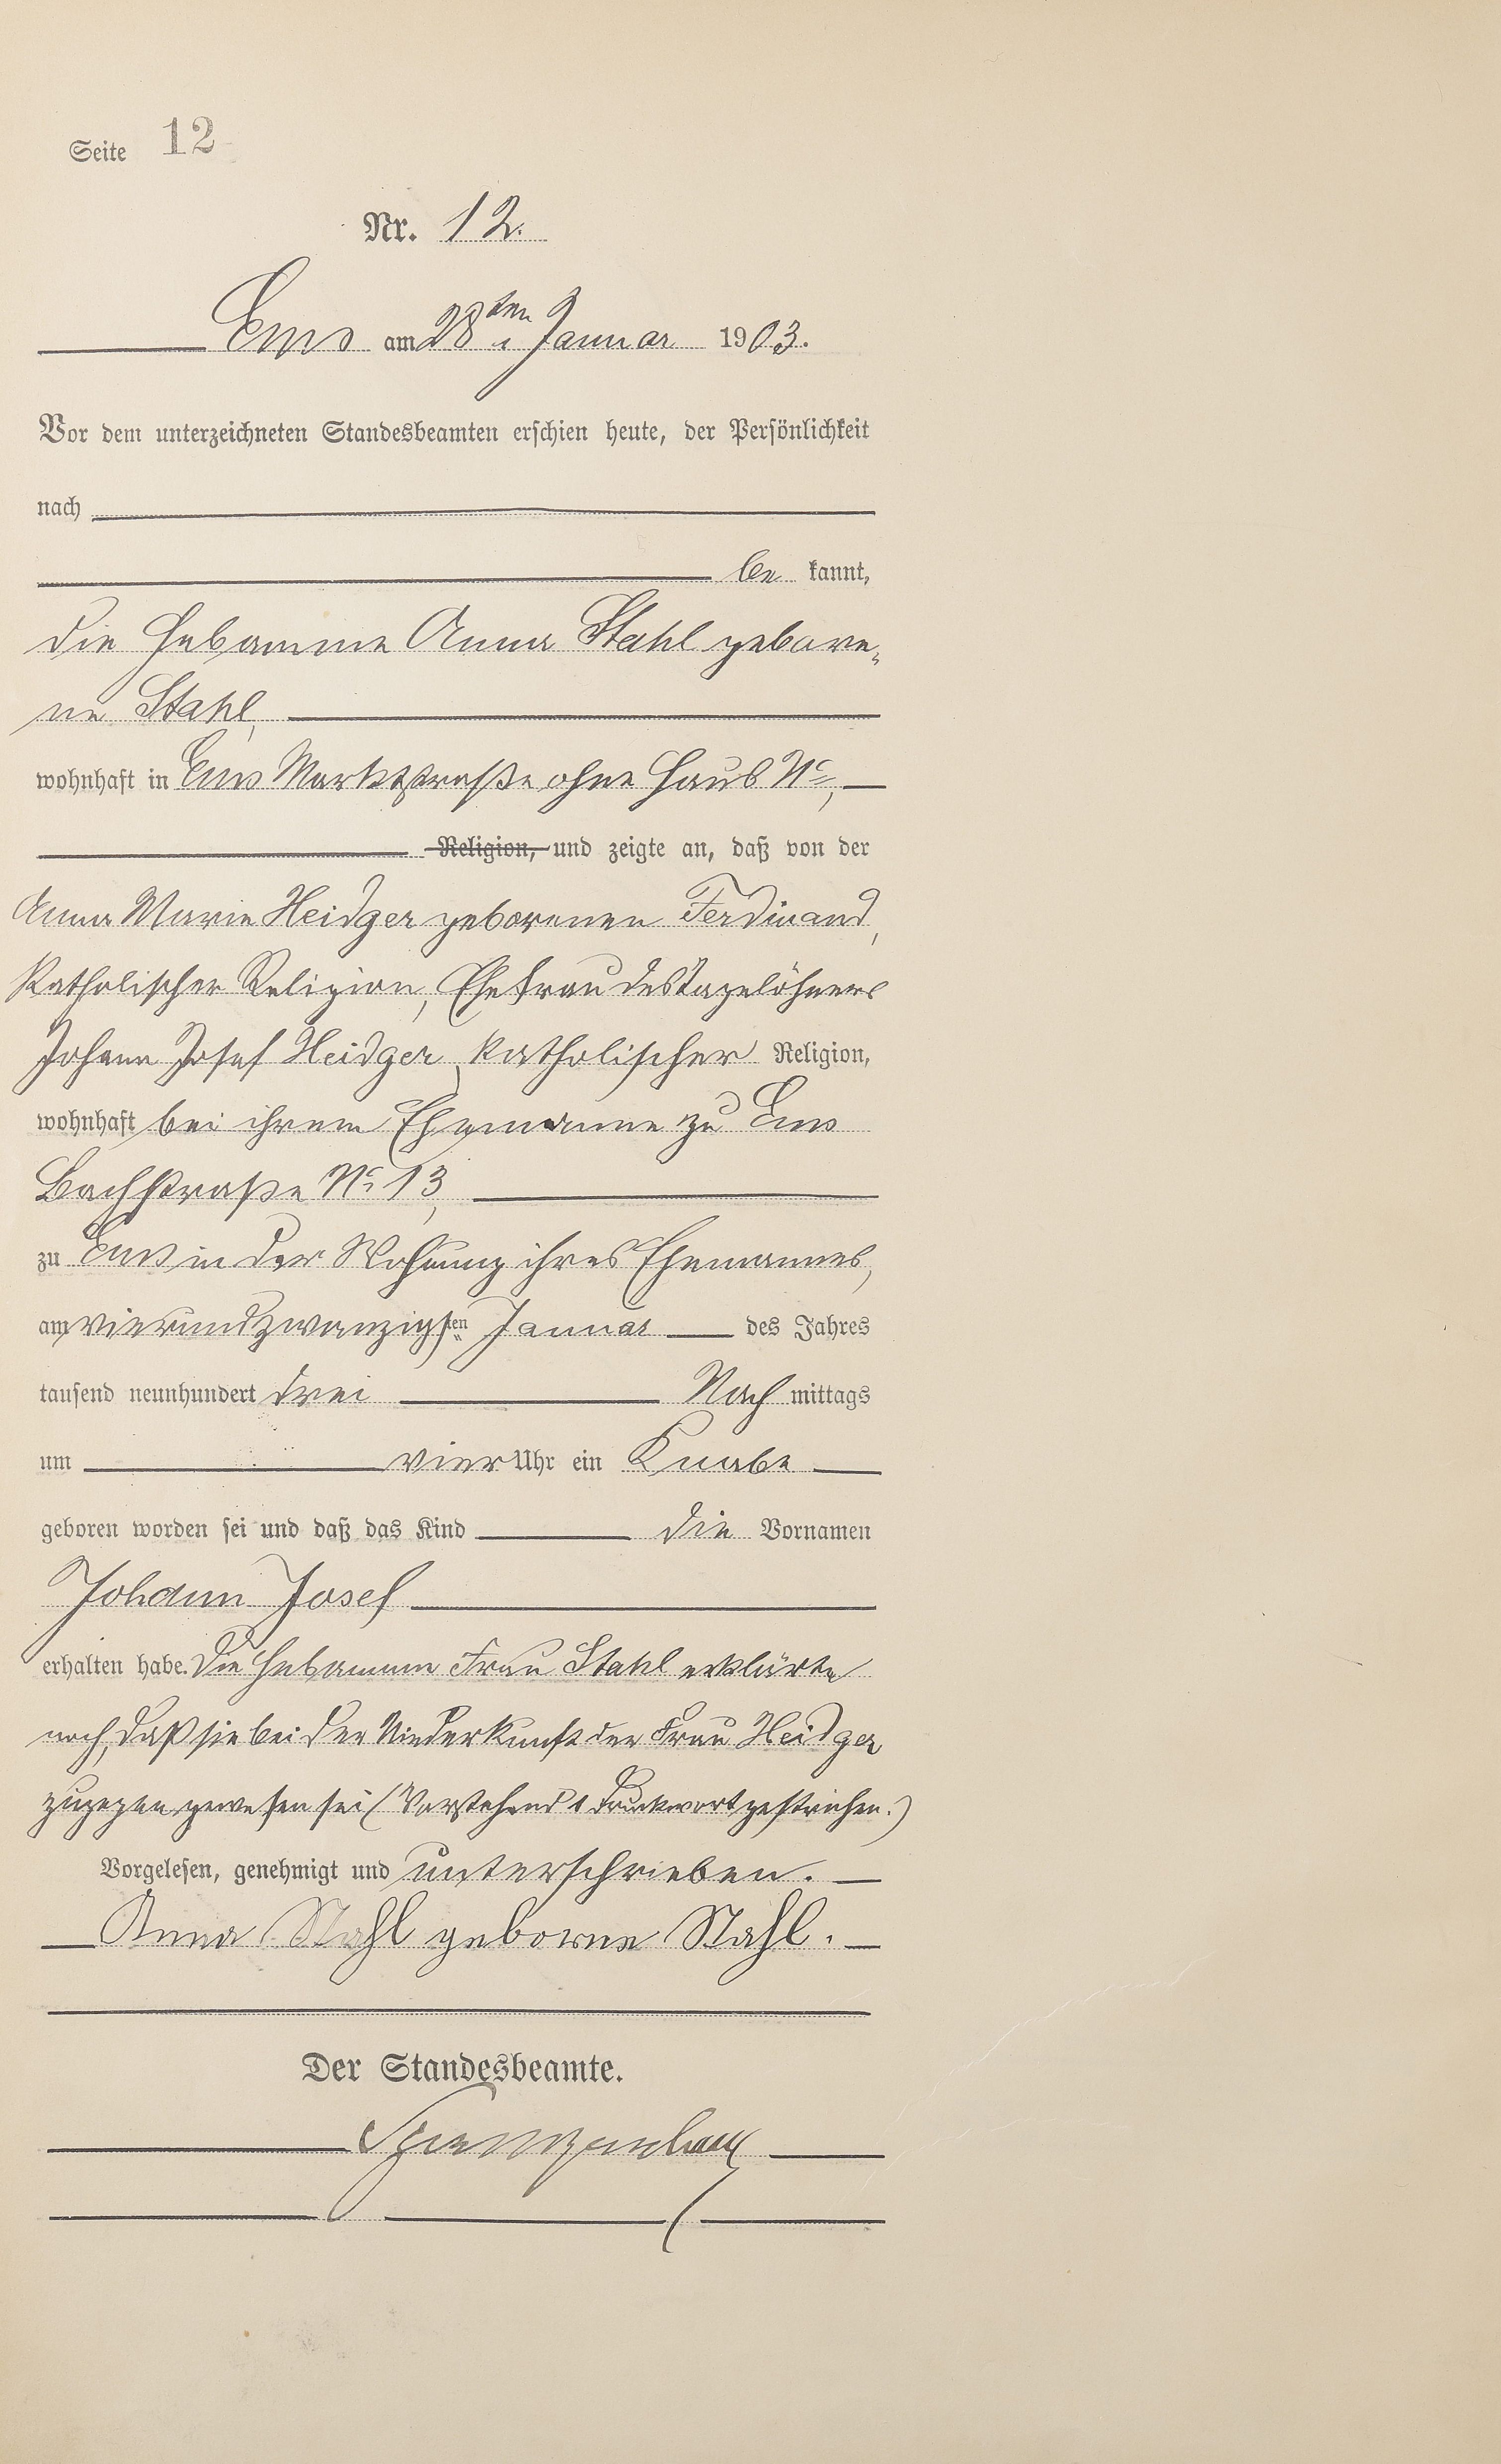 Seite 12
Nr. 12.
Ems am 28ten Januar 1903.
Vor dem unterzeichneten Standesbeamten erschien heute, der Persönlichkeit
nach
be kannt,
die Hebamme Anna Stahl gebore-
ne Stahl,
wohnhaft in Ems Marktstraße ohne Haus No,
Religion, und zeigte an, daß von der
Anna Marie Heidger geborenen Ferdinand,
katholischer Religion, Ehefrau des Tagelöhners
Johann Josef Heidger, katholischer Religion,
wohnhaft bei ihrem Ehemanne zu Ems
Bachstraße No 13,
zu Ems in der Wohnung ihres Ehemannes,
am vierundzwanzigsten Januar des Jahres
tausend neunhundert drei Nach mittags
um vier Uhr ein Knabe
geboren worden sei und daß das Kind die Vornamen
Johann Josef
erhalten habe. Die Hebamme Frau Stahl erklärte
noch, daß sie bei der Niederkunft der Frau Heidger
zugegen gewesen sei (Vorstehend 1 Druckwort gestrichen.)
Vorgelesen, genehmigt und unterschrieben.
Anna Stahl geborne Stahl.
Der Standesbeamte.